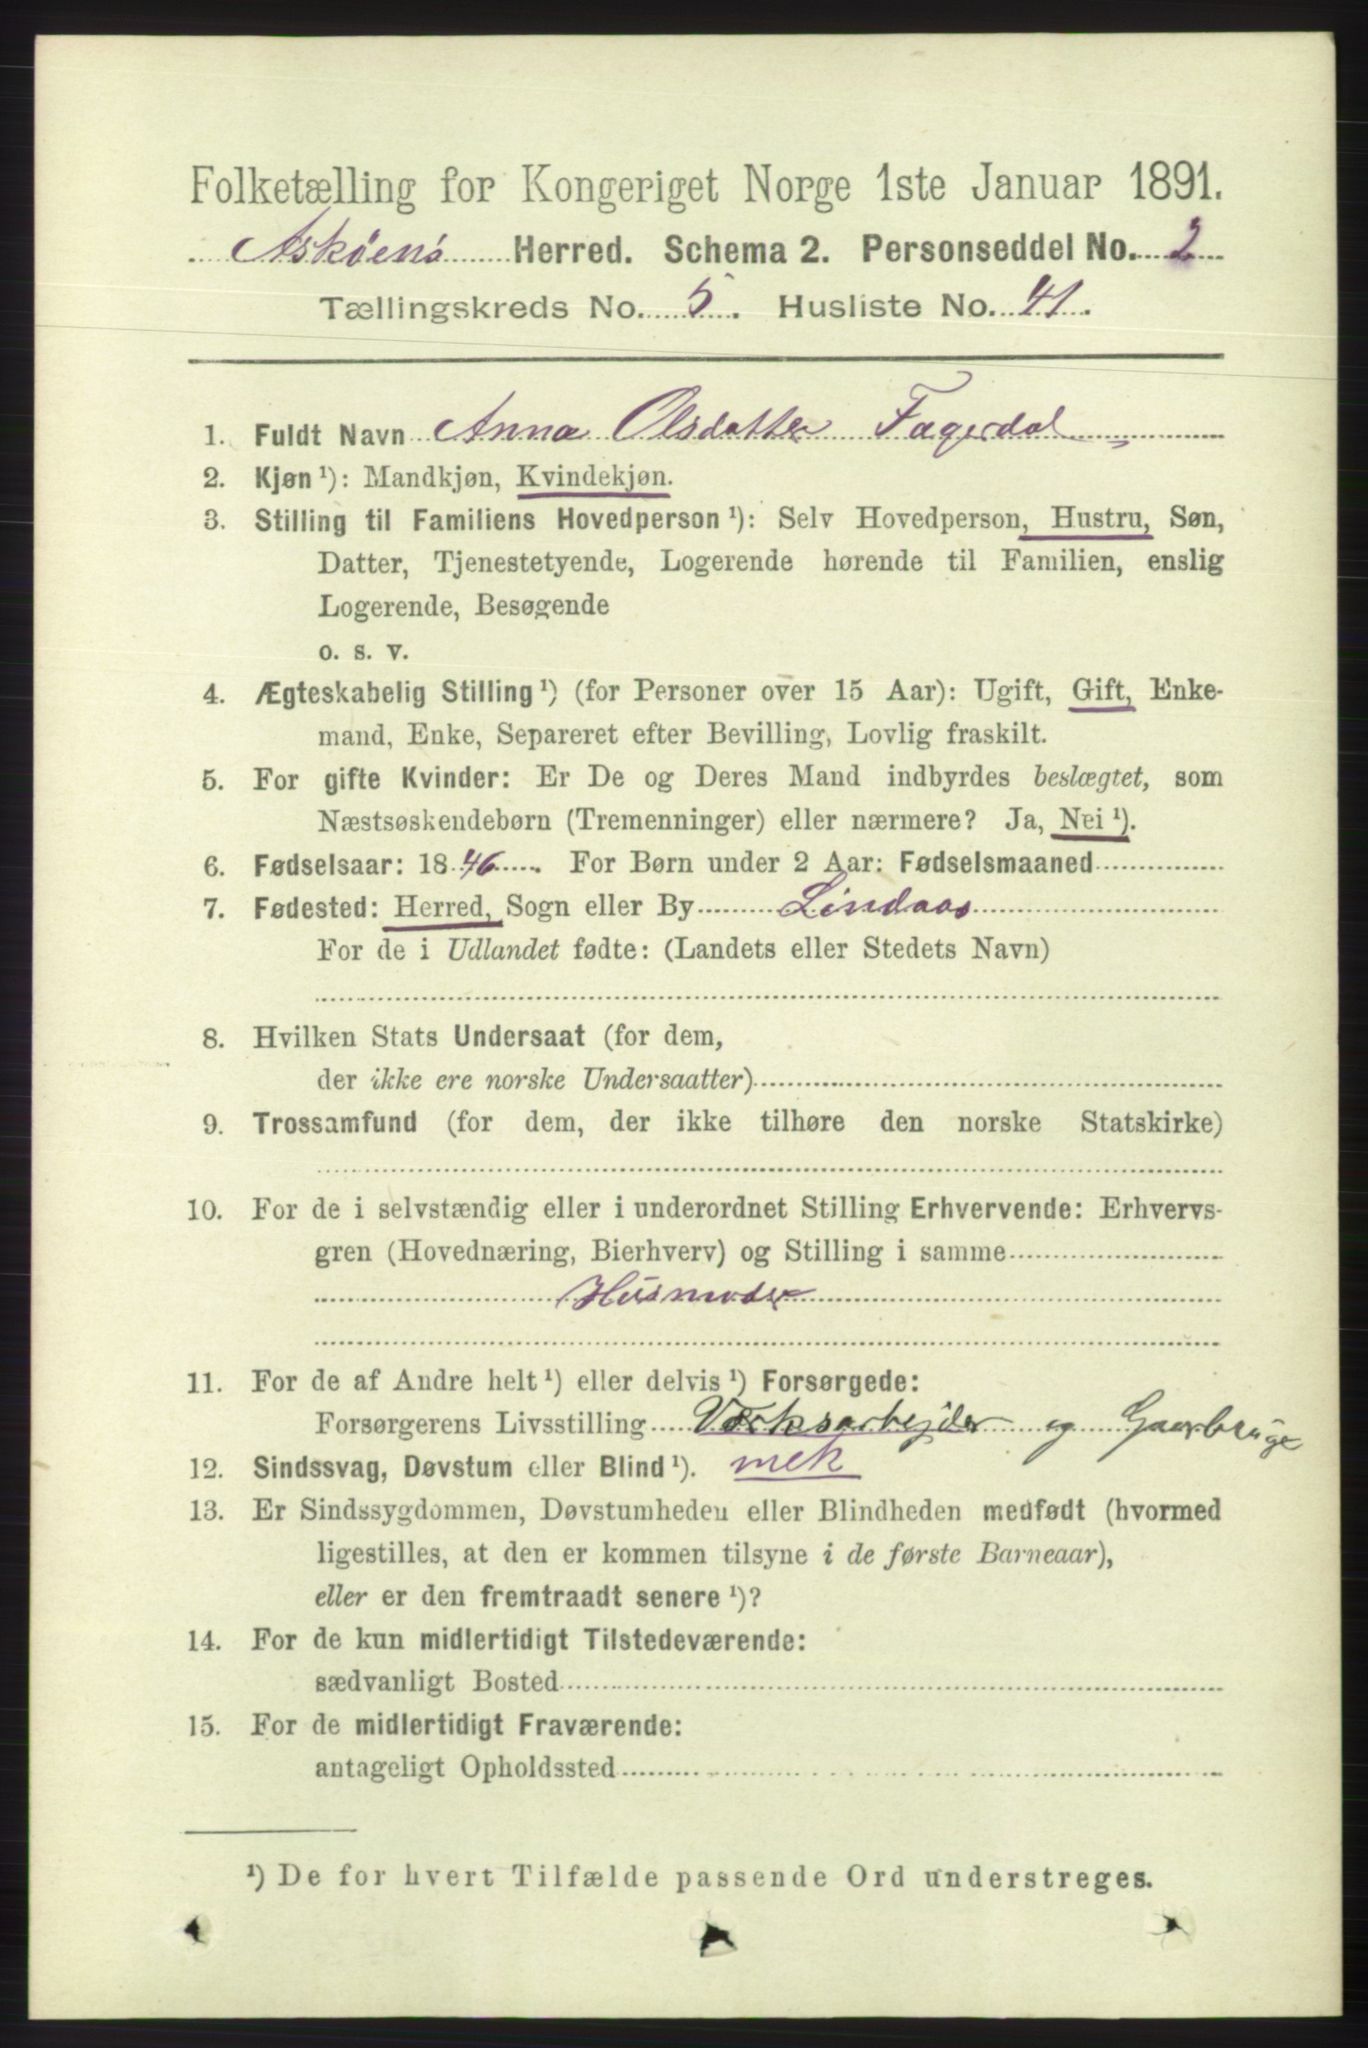 Folketælling for Kongeriget Norge 1ste Januar 1891.
Askøens Herred. Schema 2. Personseddel No. 2
Tællingskreds No. 5. Husliste No. 41.
1. Fuldt Navn Anna Olsdatter Fagerdal
2. Kjøn ¹): Mandkjøn, Kvindekjøn.
3. Stilling til Familiens Hovedperson ¹): Selv Hovedperson, Hustru, Søn,
Datter, Tjenestetyende, Logerende hørende til Familien, enslig
Logerende, Besøgende
o. s. v.
4. Ægteskabelig Stilling ¹) (for Personer over 15 Aar): Ugift, Gift, Enke-
mand, Enke, Separeret efter Bevilling, Lovlig fraskilt.
5. For gifte Kvinder: Er De og Deres Mand indbyrdes beslægtet, som
Næstsøskendebørn (Tremenninger) eller nærmere? Ja, Nei ¹).
6. Fødselsaar: 1846. For Børn under 2 Aar: Fødselsmaaned
7. Fødested: Herred, Sogn eller By Lindaas
For de i Udlandet fødte: (Landets eller Stedets Navn)
8. Hvilken Stats Undersaat (for dem,
der ikke ere norske Undersaatter)
9. Trossamfund (for dem, der ikke tilhøre den norske Statskirke)
10. For de i selvstændig eller i underordnet Stilling Erhvervende: Erhvervs-
gren (Hovednæring, Bierhverv) og Stilling i samme
Husmoder
11. For de af Andre helt ¹) eller delvis ¹) Forsørgede:
Forsørgerens Livsstilling Værksarbejder og Gaarbruge
12. Sindssvag, Døvstum eller Blind ¹). mek
13. Er Sindssygdommen, Døvstumheden eller Blindheden medfødt (hvormed
ligestilles, at den er kommen tilsyne i de første Barneaar),
eller er den fremtraadt senere ¹)?
14. For de kun midlertidigt Tilstedeværende:
sædvanligt Bosted
15. For de midlertidigt Fraværende:
antageligt Opholdssted
¹) De for hvert Tilfælde passende Ord understreges.